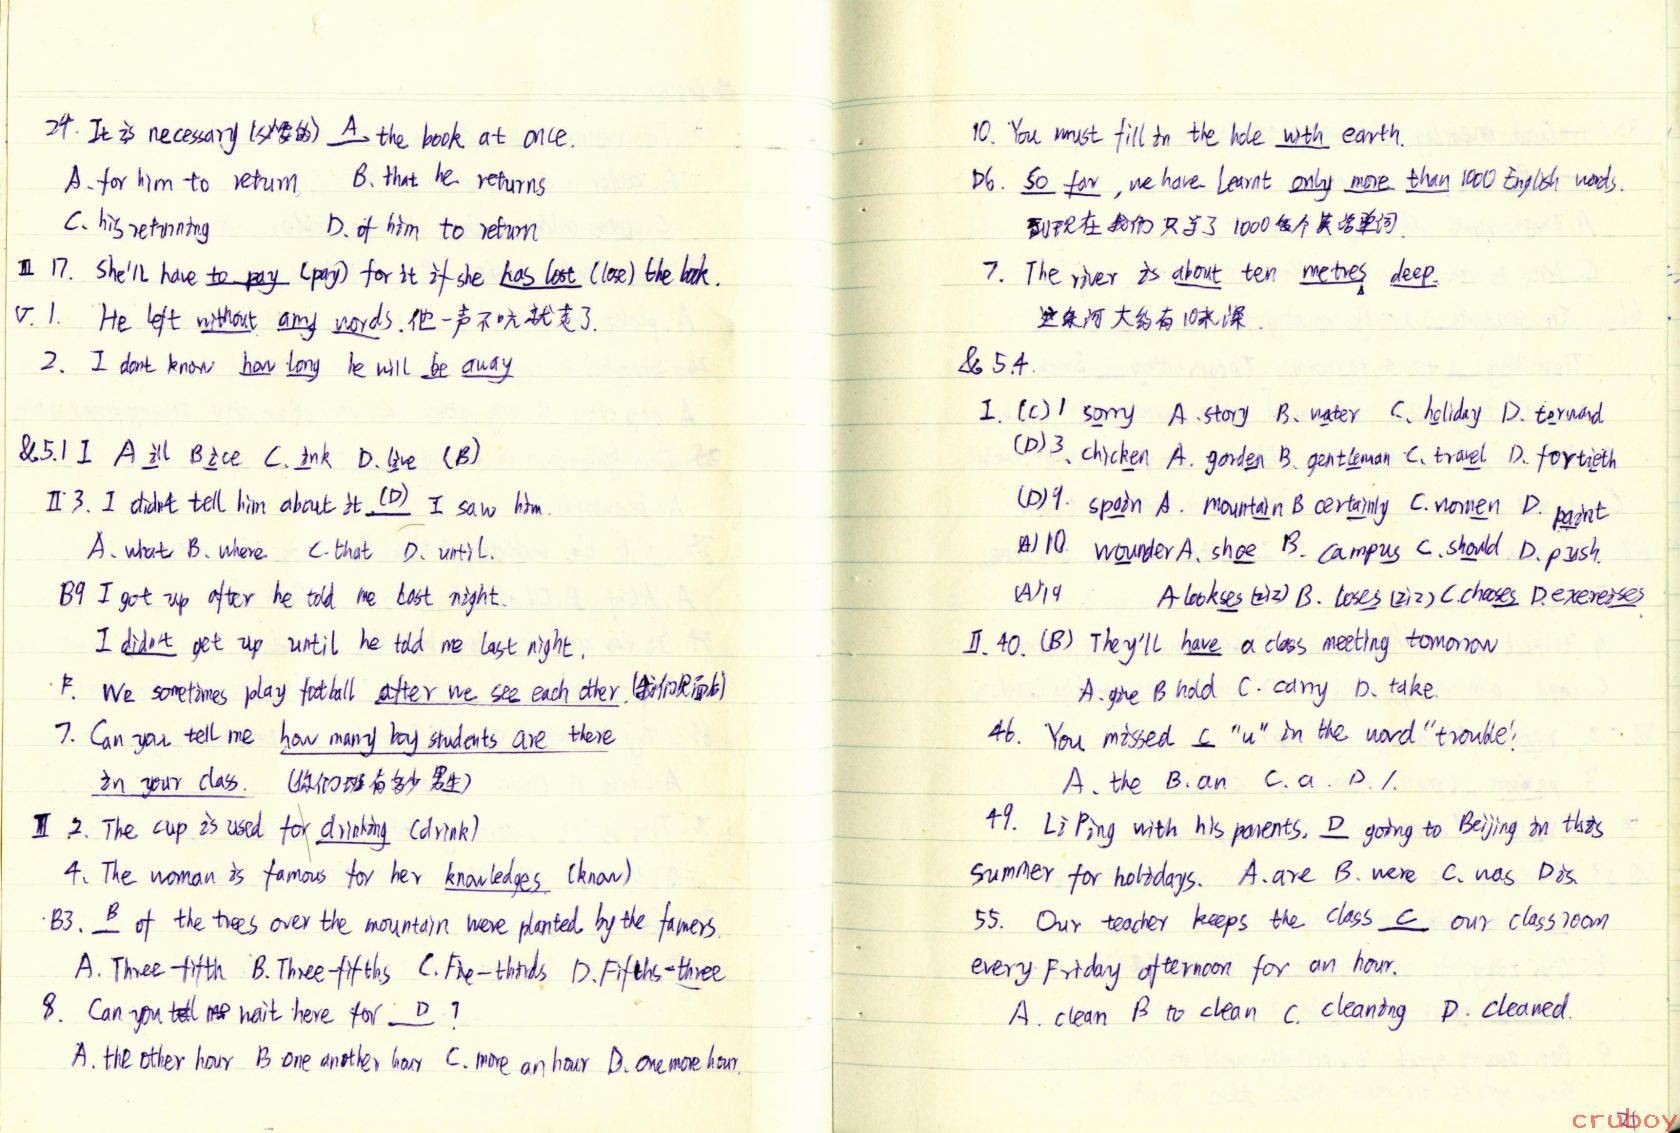 24. It is necessary (必要的) A the book at once.
A. for him to return B. that he returns
C. his returning D. of him to return
III 17. She'll have to pay (pay) for it if she has lost (lose) the book.
V. 1. He left without any words. 他一声不吭就走了.
2. I dont know how long he will be away
&5.1 I A ill B ice C. ink D. live (B)
II 3. I didn't tell him about it (D) I saw him.
A. what B. where C. that D. until.
B9 I got up after he told me last night.
I didn't get up until he told me last night.
F. We sometimes play football after we see each other. (我们见面后)
7. Can you tell me how many boy students are there
in your class. (你们班有多少男生)
II 2. The cup is used for drinking (drink)
4. The woman is famous for her knowledges (know)
B3. B of the trees over the mountain were planted by the famers.
A. Three-fifth B. Three-fifths C. Five-thirds D. Fifths-three
8. Can you wait here for D ?
A. the other hour B one another hour C. more an hour D. one more hour.
10. You must fill in the hole with earth.
D6. So far, we have learnt only more than 1000 English words.
到现在我们只学了1000多个英语单词.
7. The river is about ten metres deep.
这条河大约有10米深.
&5.4.
I. (C) 1 sorry A. story B. water C. holiday D. terward
(D) 3. chicken A. gorden B. gentleman C. travel D. fortieth
(D) 9. spain A. mountain B certainly C. women D. paint
(A) 10. wounder A. shoe B. campus C. should D. push.
(A) 19 A lookses (ziz) B. loses (ziz) C. chooses D. exereises
II. 40. (B) They'll have a class meeting tomorrow
A. give B hold C. carry D. take.
46. You missed C "u" in the word "trouble!
A. the B. an C. a. D. /.
49. Li Ping with his parents, D going to Beijing in this
summer for holidays. A. are B. were C. was D is.
55. Our teacher keeps the class C our classroom
every Friday afternoon for an hour.
A. clean B to clean C. cleaning D. cleaned.
cruboy